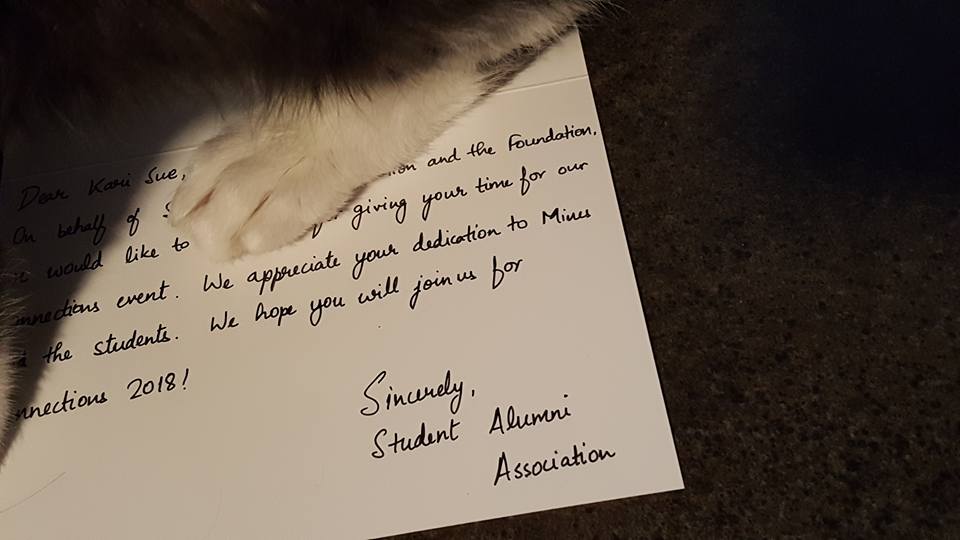 Dear Kari Sue,
On behalf of and the Foundation,
would like to for giving your time for our
event. We appreciate your dedication to Mines
the students. We hope you will join us for
2018!
Sincerely,
Student Alumni
Association